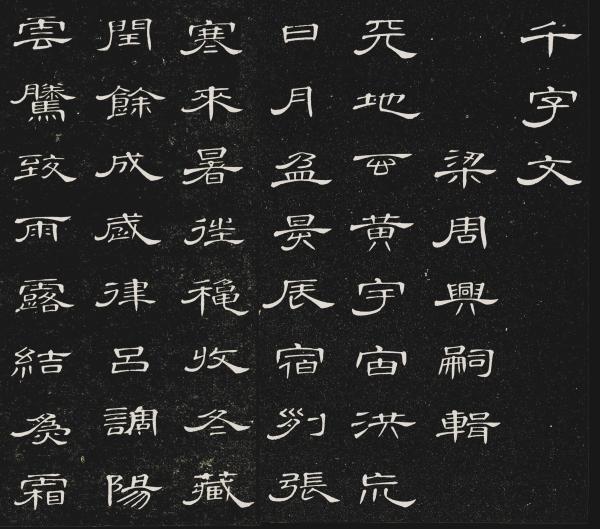 千字文
梁周興嗣輯
天地玄黄宇宙洪巟
日月盈昃辰宿列張
寒來暑往穐收冬藏
閏餘成歲律呂調陽
雲騰致雨露結爲霜